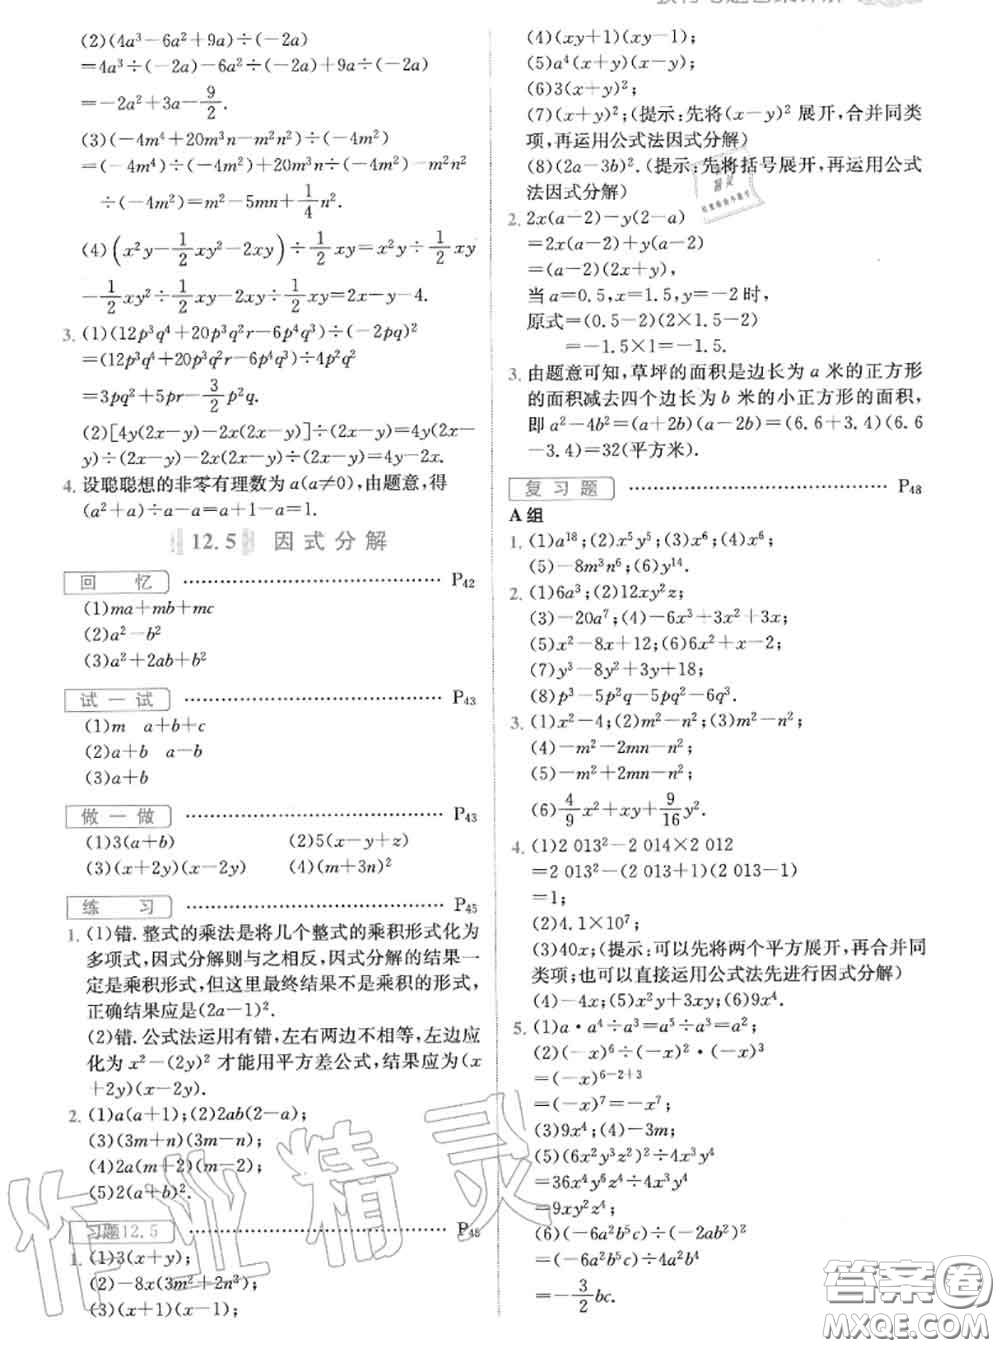 (2)(4a³−6a²+9a)÷(−2a)
=4a³÷(−2a)−6a²÷(−2a)+9a÷(−2a)
=−2a²+3a−9/2.
(3)(−4m⁴+20m³n−m²n²)÷(−4m²)
=(−4m⁴)÷(−4m²)+20m³n÷(−4m²)−m²n²
÷(−4m²)=m²−5mn+1/4n².
(4)(x²y−1/2xy²−2xy)÷1/2xy=x²y÷1/2xy
−1/2xy²÷1/2xy−2xy÷1/2xy=2x−y−4.
3. (1)(12p³q⁴+20p³q²r−6p⁴q³)÷(−2pq)²
=(12p³q⁴+20p³q²r−6p⁴q³)÷4p²q²
=3pq²+5pr−3/2p²q.
(2)[4y(2x−y)−2x(2x−y)]÷(2x−y)=4y(2x−
y)÷(2x−y)−2x(2x−y)÷(2x−y)=4y−2x.
4. 设聪聪想的非零有理数为a(a≠0),由题意,得
(a²+a)÷a−a=a+1−a=1.
12.5 因式分解
回 忆 P42
(1)ma+mb+mc
(2)a²−b²
(3)a²+2ab+b²
试一试 P43
(1)m a+b+c
(2)a+b a−b
(3)a+b
做一做 P43
(1)3(a+b) (2)5(x−y+z)
(3)(x+2y)(x−2y) (4)(m+3n)²
练 习 P45
1. (1)错.整式的乘法是将几个整式的乘积形式化为
多项式,因式分解则与之相反,因式分解的结果一
定是乘积形式,但这里最终结果不是乘积的形式,
正确结果应是(2a−1)².
(2)错.公式法运用有错,左右两边不相等,左边应
化为x²−(2y)²才能用平方差公式,结果应为(x
+2y)(x−2y).
2. (1)a(a+1);(2)2ab(2−a);
(3)(3m+n)(3m−n);
(4)2a(m+2)(m−2);
(5)2(a+b)².
习题12.5 P45
1. (1)3(x+y);
(2)−8x(3m²+2n³);
(3)(x+1)(x−1);
(4)(xy+1)(xy−1);
(5)a⁴(x+y)(x−y);
(6)3(x+y)²;
(7)(x+y)²;(提示:先将(x−y)²展开,合并同类
项,再运用公式法因式分解)
(8)(2a−3b)².(提示:先将括号展开,再运用公式
法因式分解)
2. 2x(a−2)−y(2−a)
=2x(a−2)+y(a−2)
=(a−2)(2x+y),
当a=0.5,x=1.5,y=−2时,
原式=(0.5−2)(2×1.5−2)
=−1.5×1=−1.5.
3. 由题意可知,草坪的面积是边长为a米的正方形
的面积减去四个边长为b米的小正方形的面积,
即a²−4b²=(a+2b)(a−2b)=(6.6+3.4)(6.6
−3.4)=32(平方米).
复习题 P48
A组
1. (1)a¹⁸;(2)x⁵y⁵;(3)x⁶;(4)x⁶;
(5)−8m³n⁶;(6)y¹⁴.
2. (1)6a³;(2)12xy²z;
(3)−20a⁷;(4)−6x³+3x²+3x;
(5)x²−8x+12;(6)6x²+x−2;
(7)y³−8y²+3y+18;
(8)p³−5p²q−5pq²−6q³.
3. (1)x²−4;(2)m²−n²;(3)m²−n²;
(4)−m²−2mn−n²;
(5)−m²+2mn−n²;
(6)4/9x²+xy+9/16y².
4. (1)2 013²−2 014×2 012
=2 013²−(2 013+1)(2 013−1)
=1;
(2)4.1×10⁷;
(3)40x;(提示:可以先将两个平方展开,再合并同
类项;也可以直接运用公式法先进行因式分解)
(4)−4x;(5)x²y+3xy;(6)9x⁴.
5. (1)a·a⁴÷a³=a⁵÷a³=a²;
(2)(−x)⁶÷(−x)²·(−x)³
=(−x)⁶⁻²⁺³
=(−x)⁷=−x⁷;
(3)9x⁴;(4)−3m;
(5)(6x²y³z²)²÷4x³y⁴
=36x⁴y⁶z⁴÷4x³y⁴
=9xy²z⁴;
(6)(−6a²b⁵c)÷(−2ab²)²
=(−6a²b⁵c)÷4a²b⁴
=−3/2bc.
作业精灵
答案圈
MXQE.COM